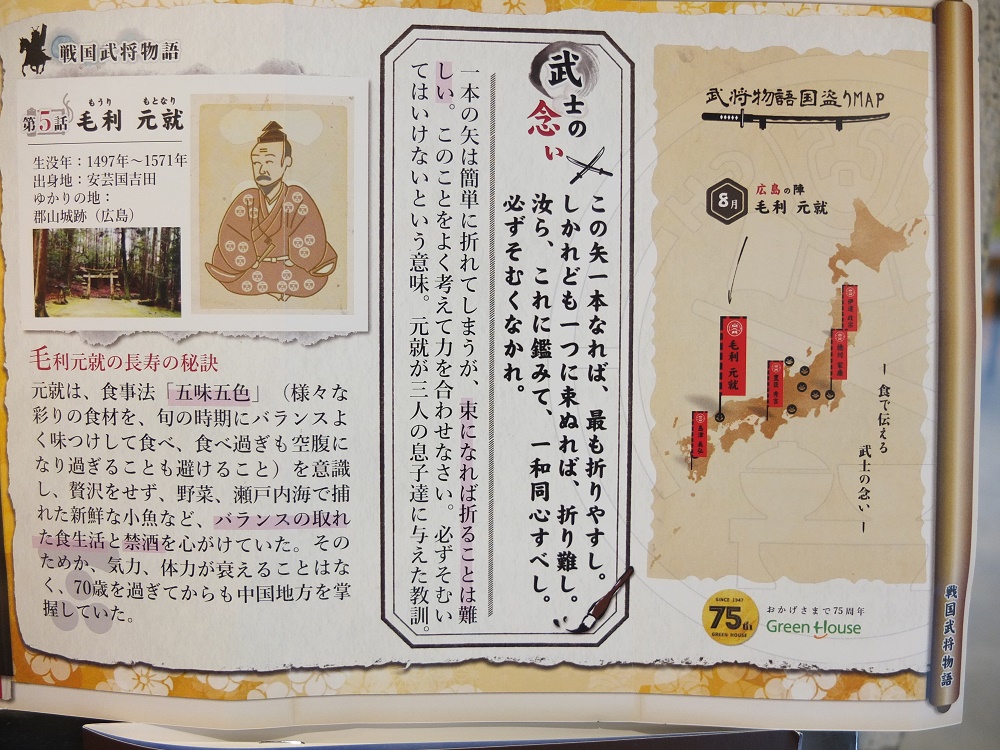 戦国武将物語
第5話
もうり もとなり
毛利 元就
生没年：1497年～1571年
出身地：安芸国吉田
ゆかりの地：
郡山城跡（広島）
毛利元就の長寿の秘訣
元就は、食事法「五味五色」（様々な
彩りの食材を、旬の時期にバランスよ
く味つけして食べ、食べ過ぎも空腹に
なり過ぎることも避けること）を意識
し、贅沢をせず、野菜、瀬戸内海で捕
れた新鮮な小魚など、バランスの取れ
た食生活と禁酒を心がけていた。その
ためか、気力、体力が衰えることはな
く、70歳を過ぎてからも中国地方を掌
握していた。
武士の念い
この矢一本なれば、最も折りやすし。
しかれども一つに束ぬれば、折り難し。
汝ら、これに鑑みて、一和同心すべし。
必ずそむくなかれ。
一本の矢は簡単に折れてしまうが、束になれば折ることは難
しい。このことをよく考えて力を合わせなさい。必ずそむい
てはいけないという意味。元就が三人の息子達に与えた教訓。
武将物語国盗りMAP
8月
広島の陣
毛利 元就
毛利 元就
伊達 政宗
徳川 家康
豊臣 秀吉
島津 義弘
― 食で伝える
武士の念い ―
SINCE 1947
75th
GREEN HOUSE
おかげさまで75周年
Green House
戦国武将物語